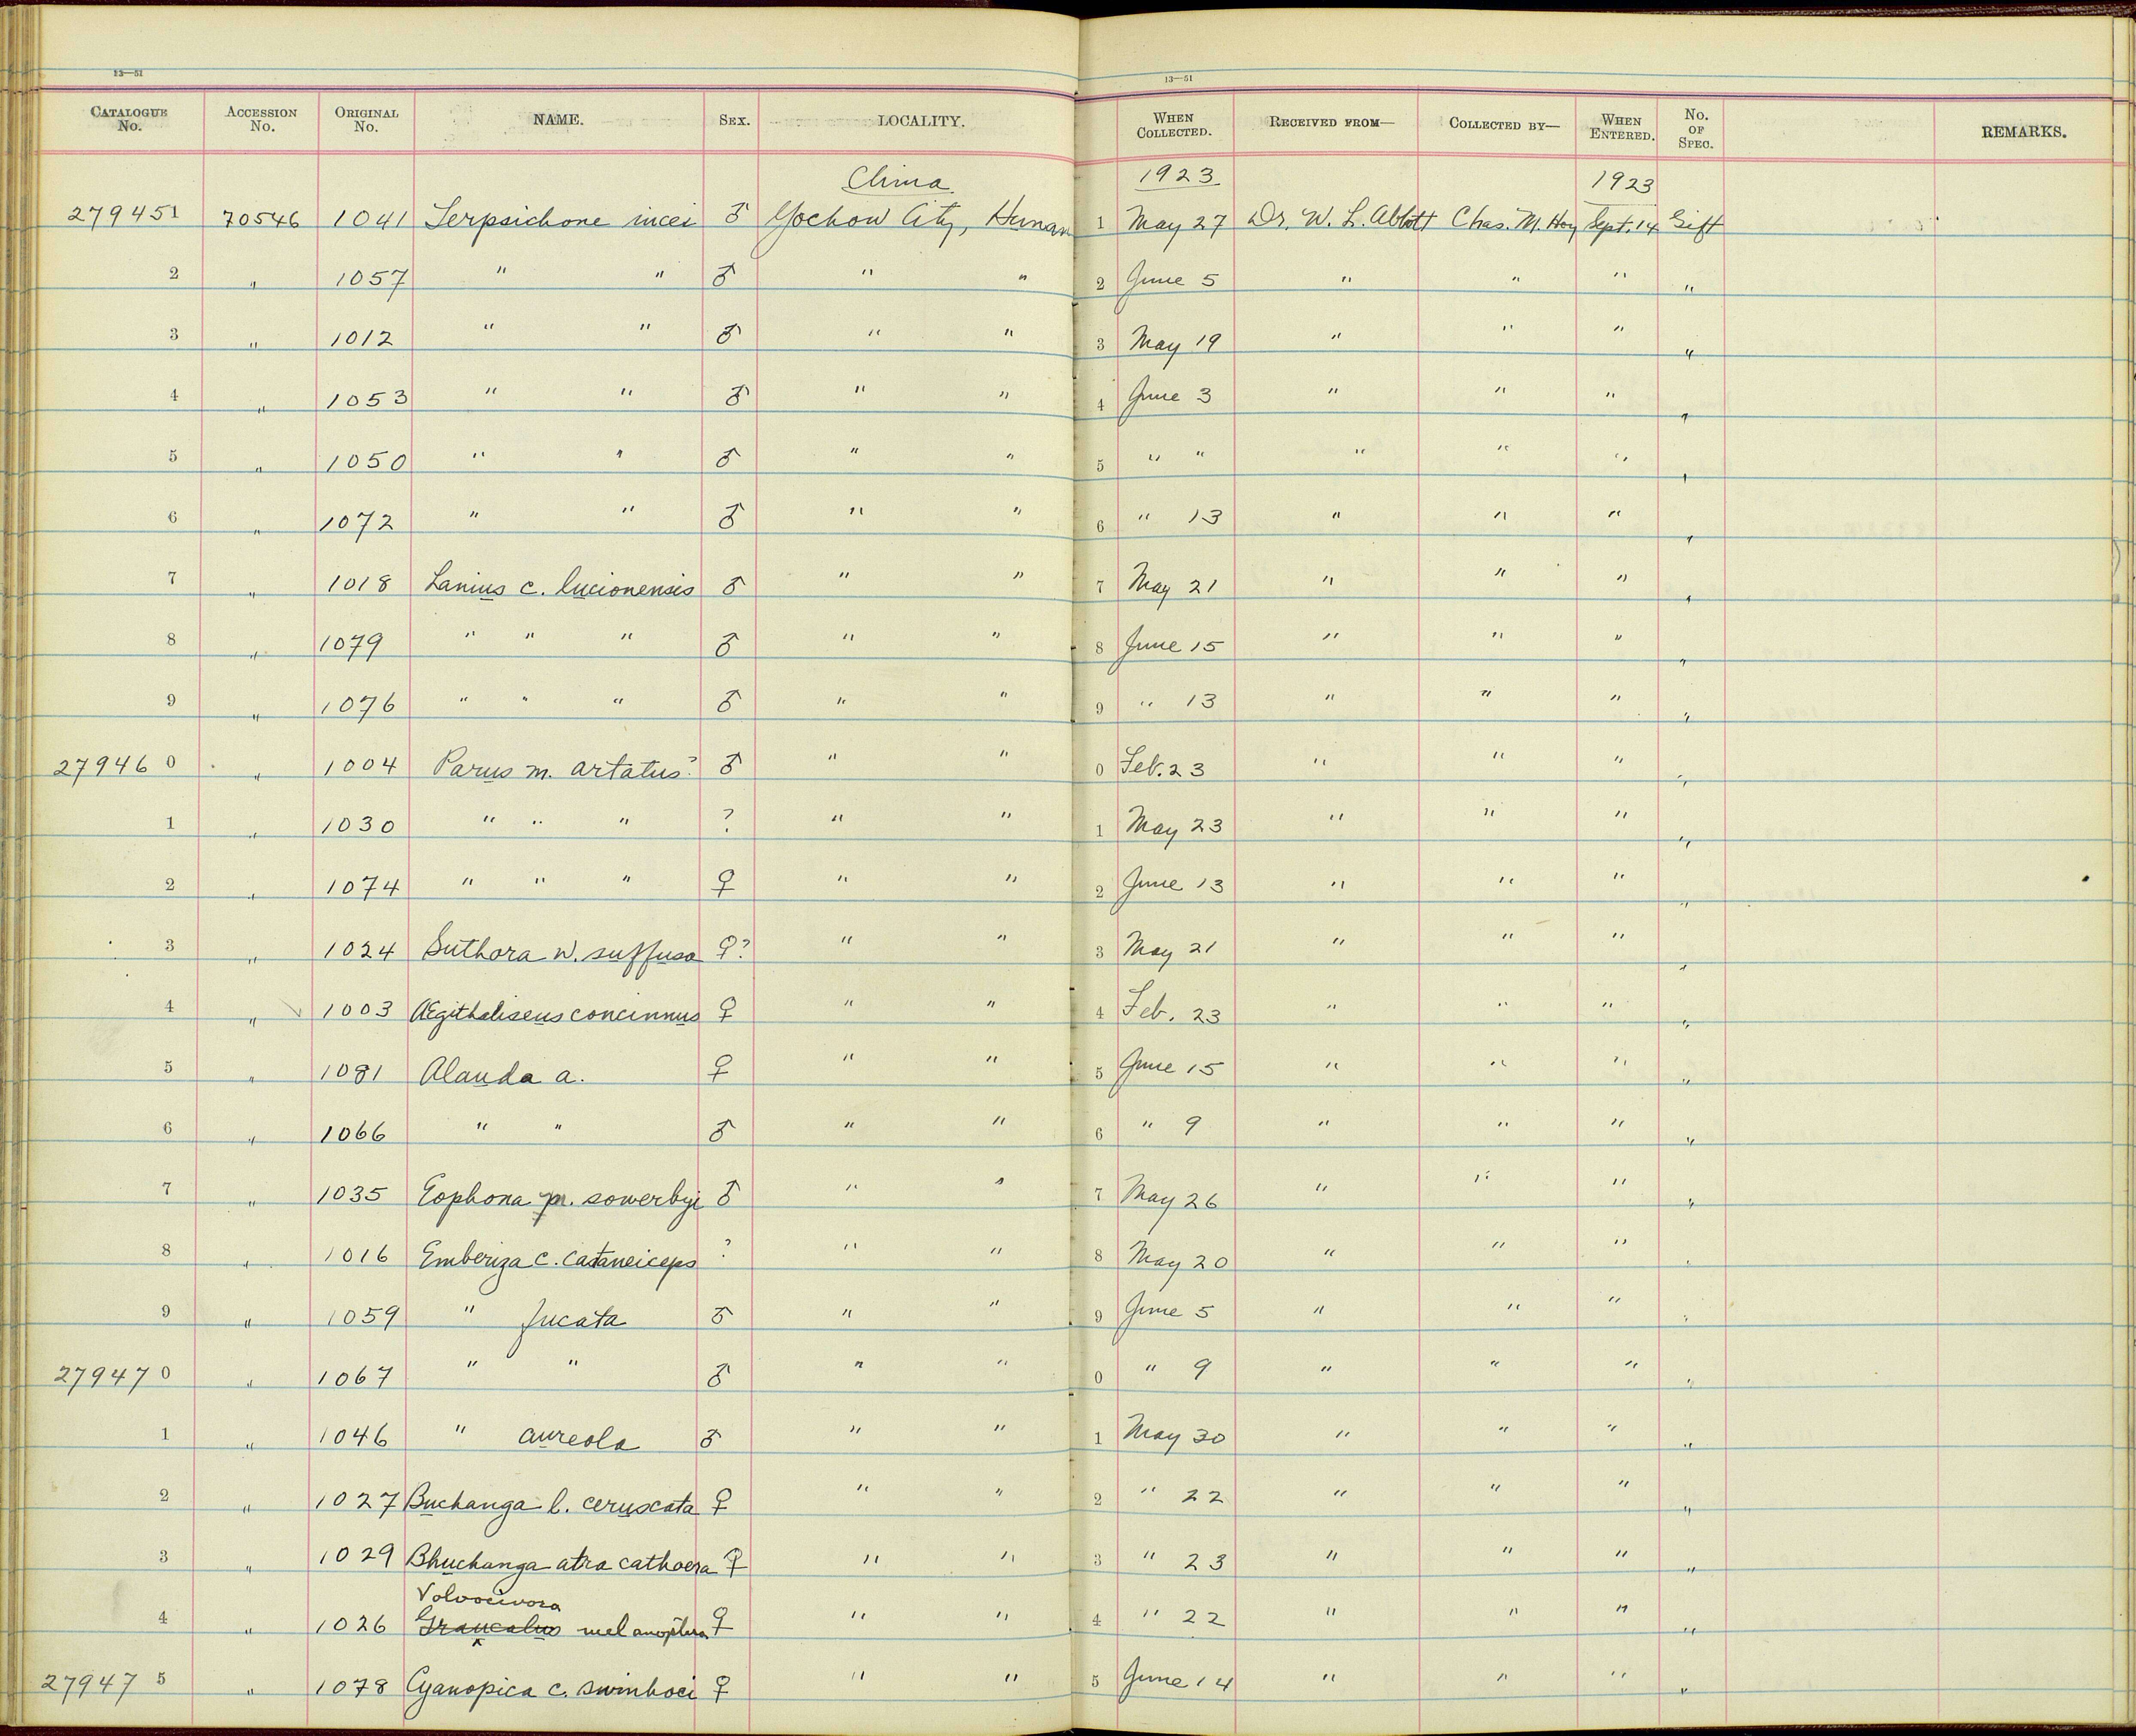 13—51
13—51
CATALOGUE No. ACCESSION No. ORIGINAL No. NAME. SEX. LOCALITY. WHEN COLLECTED. RECEIVED FROM— COLLECTED BY— WHEN ENTERED. No. OF SPEC. REMARKS.
China 1923 1923
279451 70546 1041 Terpsichone incei ♂ Yochow City, Hunan 1 May 27 Dr. W. L. Abbott Chas. M. Hoy Sept. 14 Gift
2 " 1057 " " ♂ " " 2 June 5 " " " "
3 " 1012 " " ♂ " " 3 May 19 " " " "
4 " 1053 " " ♂ " " 4 June 3 " " " "
5 " 1050 " " ♂ " " 5 " " " " " "
6 " 1072 " " ♂ " " 6 " 13 " " " "
7 " 1018 Lanius c. lucionensis ♂ " " 7 May 21 " " " "
8 " 1079 " " " ♂ " " 8 June 15 " " " "
9 " 1076 " " " ♂ " " 9 " 13 " " " "
279460 " 1004 Parus m. artatus? ♂ " " 0 Feb. 23 " " " "
1 " 1030 " " " ? " " 1 May 23 " " " "
2 " 1074 " " " ♀ " " 2 June 13 " " " "
3 " 1024 Suthora w. suffusa ♀? " " 3 May 21 " " " "
4 " 1003 Ægithaliscus concinnus ♀ " " 4 Feb. 23 " " " "
5 " 1081 Alauda a. ♀ " " 5 June 15 " " " "
6 " 1066 " " ♂ " " 6 " 9 " " " "
7 " 1035 Eophona m. sowerbyi ♂ " " 7 May 26 " " " "
8 " 1016 Emberiza c. castaneiceps ? " " 8 May 20 " " " "
9 " 1059 " fucata ♂ " " 9 June 5 " " " "
279470 " 1067 " " ♂ " " 0 " 9 " " " "
1 " 1046 " aureola ♂ " " 1 May 30 " " " "
2 " 1027 Buchanga l. ceruscata ♀ " " 2 " 22 " " " "
3 " 1029 Bhuchanga atra cathoera ♀ " " 3 " 23 " " " "
Volvocivora
4 " 1026 Graucalus melanoptera ♀ " " 4 " 22 " " " "
279475 " 1078 Cyanopica c. swinhoei ♀ " " 5 June 14 " " " "